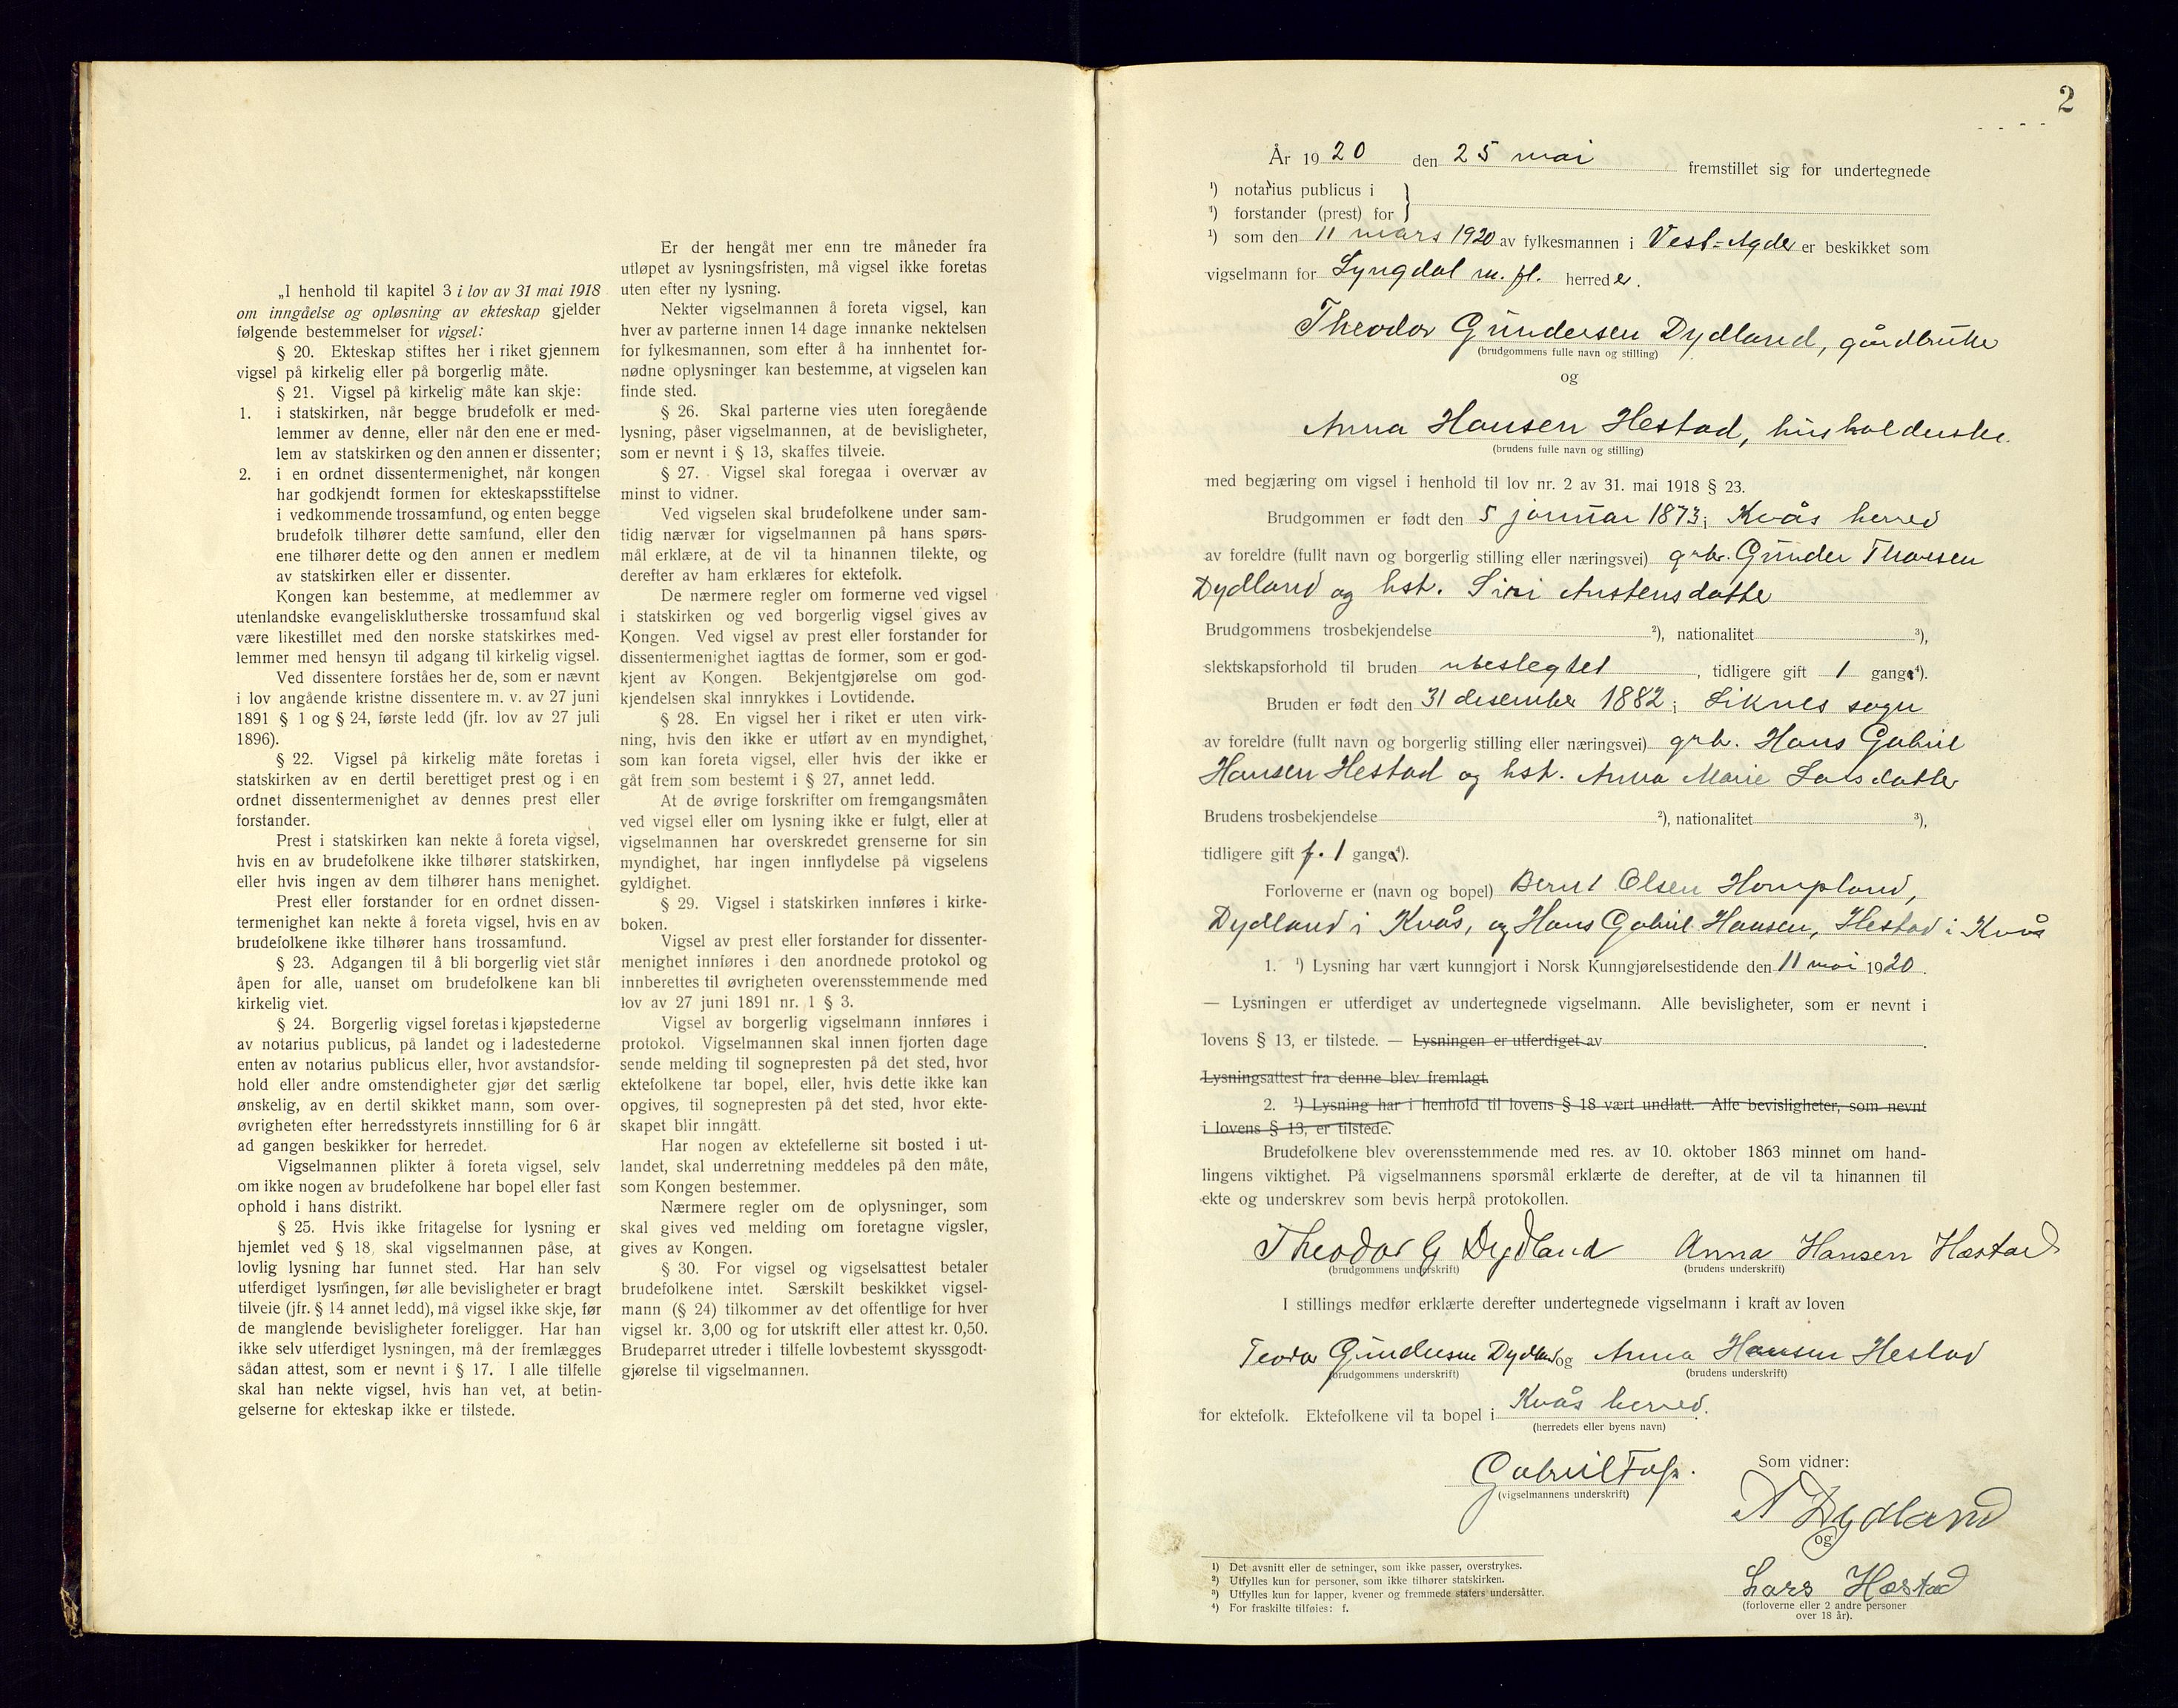 „I henhold til kapitel 3 i lov av 31 mai 1918
om inngåelse og opløsning av ekteskap gjelder
følgende bestemmelser for vigsel:
§ 20. Ekteskap stiftes her i riket gjennem
vigsel på kirkelig eller på borgerlig måte.
§ 21. Vigsel på kirkelig måte kan skje:
1. i statskirken, når begge brudefolk er med-
lemmer av denne, eller når den ene er med-
lem av statskirken og den annen er dissenter;
2. i en ordnet dissentermenighet, når kongen
har godkjendt formen for ekteskapsstiftelse
i vedkommende trossamfund, og enten begge
brudefolk tilhører dette samfund, eller den
ene tilhører dette og den annen er medlem
av statskirken eller er dissenter.
Kongen kan bestemme, at medlemmer av
utenlandske evangelisklutherske trossamfund skal
være likestillet med den norske statskirkes med-
lemmer med hensyn til adgang til kirkelig vigsel.
Ved dissentere forståes her de, som er nævnt
i lov angående kristne dissentere m. v. av 27 juni
1891 § 1 og § 24, første ledd (jfr. lov av 27 juli
1896).
§ 22. Vigsel på kirkelig måte foretas i
statskirken av en dertil berettiget prest og i en
ordnet dissentermenighet av dennes prest eller
forstander.
Prest i statskirken kan nekte å foreta vigsel,
hvis en av brudefolkene ikke tilhører statskirken,
eller hvis ingen av dem tilhører hans menighet.
Prest eller forstander for en ordnet dissen-
termenighet kan nekte å foreta vigsel, hvis en av
brudefolkene ikke tilhører hans trossamfund.
§ 23. Adgangen til å bli borgerlig viet står
åpen for alle, uanset om brudefolkene kan bli
kirkelig viet.
§ 24. Borgerlig vigsel foretas i kjøpstederne
av notarius publicus, på landet og i ladestederne
enten av notarius publicus eller, hvor avstandsfor-
hold eller andre omstendigheter gjør det særlig
ønskelig, av en dertil skikket mann, som over-
øvrigheten efter herredsstyrets innstilling for 6 år
ad gangen beskikker for herredet.
Vigselmannen plikter å foreta vigsel, selv
om ikke nogen av brudefolkene har bopel eller fast
ophold i hans distrikt.
§ 25. Hvis ikke fritagelse for lysning er
hjemlet ved § 18, skal vigselmannen påse, at
lovlig lysning har funnet sted. Har han selv
utferdiget lysningen, før alle bevisligheter er bragt
tilveie (jfr. § 14 annet ledd), må vigsel ikke skje, før
de manglende bevisligheter foreligger. Har han
ikke selv utferdiget lysningen, må der fremlægges
sådan attest, som er nevnt i § 17. I alle tilfelle
skal han nekte vigsel, hvis han vet, at betin-
gelserne for ekteskap ikke er tilstede.
Er der hengåt mer enn tre måneder fra
utløpet av lysningsfristen, må vigsel ikke foretas
uten efter ny lysning.
Nekter vigselmannen å foreta vigsel, kan
hver av parterne innen 14 dage innanke nektelsen
for fylkesmannen, som efter å ha innhentet for-
nødne oplysninger kan bestemme, at vigselen kan
finde sted.
§ 26. Skal parterne vies uten foregående
lysning, påser vigselmannen, at de bevisligheter,
som er nevnt i § 13, skaffes tilveie.
§ 27. Vigsel skal foregaa i overvær av
minst to vidner.
Ved vigselen skal brudefolkene under sam-
tidig nærvær for vigselmannen på hans spørs-
mål erklære, at de vil ta hinannen tilekte, og
derefter av ham erklæres for ektefolk.
De nærmere regler om formerne ved vigsel
i statskirken og ved borgerlig vigsel gives av
Kongen. Ved vigsel av prest eller forstander for
dissentermenighet iagttas de former, som er god-
kjent av Kongen. Bekjentgjørelse om god-
kjendelsen skal innrykkes i Lovtidende.
§ 28. En vigsel her i riket er uten virk-
ning, hvis den ikke er utført av en myndighet,
som kan foreta vigsel, eller hvis der ikke er
gåt frem som bestemt i § 27, annet ledd.
At de øvrige forskrifter om fremgangsmåten
ved vigsel eller om lysning ikke er fulgt, eller at
vigselmannen har overskredet grenserne for sin
myndighet, har ingen innflydelse på vigselens
gyldighet.
§ 29. Vigsel i statskirken innføres i kirke-
boken.
Vigsel av prest eller forstander for dissenter-
menighet innføres i den anordnede protokol og
innberettes til øvrigheten overensstemmende med
lov av 27 juni 1891 nr. 1 § 3.
Vigsel av borgerlig vigselmann innføres i
protokol. Vigselmannen skal innen fjorten dage
sende melding til sognepresten på det sted, hvor
ektefolkene tar bopel, eller, hvis dette ikke kan
opgives, til sognepresten på det sted, hvor ekte-
skapet blir inngått.
Har nogen av ektefellerne sit bosted i ut-
landet, skal underretning meddeles på den måte,
som Kongen bestemmer.
Nærmere regler om de oplysninger, som
skal gives ved melding om foretagne vigsler,
gives av Kongen.
§ 30. For vigsel og vigselsattest betaler
brudefolkene intet. Særskilt beskikket vigsel-
mann (§ 24) tilkommer av det offentlige for hver
vigsel kr. 3,00 og for utskrift eller attest kr. 0,50.
Brudeparret utreder i tilfelle lovbestemt skyssgodt-
gjørelse til vigselmannen.
2
År 1920 den 25 mai fremstillet sig for undertegnede
¹) notarius publicus i
¹) forstander (prest) for
¹) som den 11 mars 1920 av fylkesmannen i Vest-Agder er beskikket som
vigselmann for Lyngdal m. fl. herreder.
Theodor Gundersen Dydland, gårdbruke
(brudgommens fulle navn og stilling)
og
Anna Hansen Hestad, husholderske
(brudens fulle navn og stilling)
med begjæring om vigsel i henhold til lov nr. 2 av 31. mai 1918 § 23.
Brudgommen er født den 5 januar 1873 i Kvås herred
av foreldre (fullt navn og borgerlig stilling eller næringsvei) grbr. Gunder Thorsen
Dydland og hst. Siri Austensdatte
Brudgommens trosbekjendelse ²), nationalitet ³),
slektskapsforhold til bruden ubeslegtet, tidligere gift 1 gang ⁴).
Bruden er født den 31 desember 1882 i Liknes sogn
av foreldre (fullt navn og borgerlig stilling eller næringsvei) grb. Hans Gabriel
Hansen Hestad og hst. Anna Marie Larsdatter
Brudens trosbekjendelse ²), nationalitet ³),
tidligere gift f. 1 gang ⁴).
Forloverne er (navn og bopel) Bernt Olsen Hompland,
Dydland i Kvås, og Hans Gabriel Hansen, Hestad i Kvås
1. ¹) Lysning har vært kunngjort i Norsk Kunngjørelsestidende den 11 mai 1920.
— Lysningen er utferdiget av undertegnede vigselmann. Alle bevisligheter, som er nevnt i
lovens § 13, er tilstede. — Lysningen er utferdiget av
Lysningsattest fra denne blev fremlagt.
2. ¹) Lysning har i henhold til lovens § 18 vært undlatt. Alle bevisligheter, som nevnt
i lovens § 13, er tilstede.
Brudefolkene blev overensstemmende med res. av 10. oktober 1863 minnet om hand-
lingens viktighet. På vigselmannens spørsmål erklærte de derefter, at de vil ta hinannen til
ekte og underskrev som bevis herpå protokollen.
Theodor G Dydland Anna Hansen Hæstad
(brudgommens underskrift) (brudens underskrift)
I stillings medfør erklærte derefter undertegnede vigselmann i kraft av loven
Teodor Gundersen Dydland og Anna Hansen Hestad
(brudgommens underskrift) (brudens underskrift)
for ektefolk. Ektefolkene vil ta bopel i Kvås herred.
(herredets eller byens navn)
Gabriel
(vigselmannens underskrift)
Som vidner:
Dydland
og
Lars Hæstad
(forloverne eller 2 andre personer
over 18 år).
¹) Det avsnitt eller de setninger, som ikke passer, overstrykes.
²) Utfylles kun for personer, som ikke tilhører statskirken.
³) Utfylles kun for lapper, kvener og fremmede staters undersåtter.
⁴) For fraskilte tilføies: f.